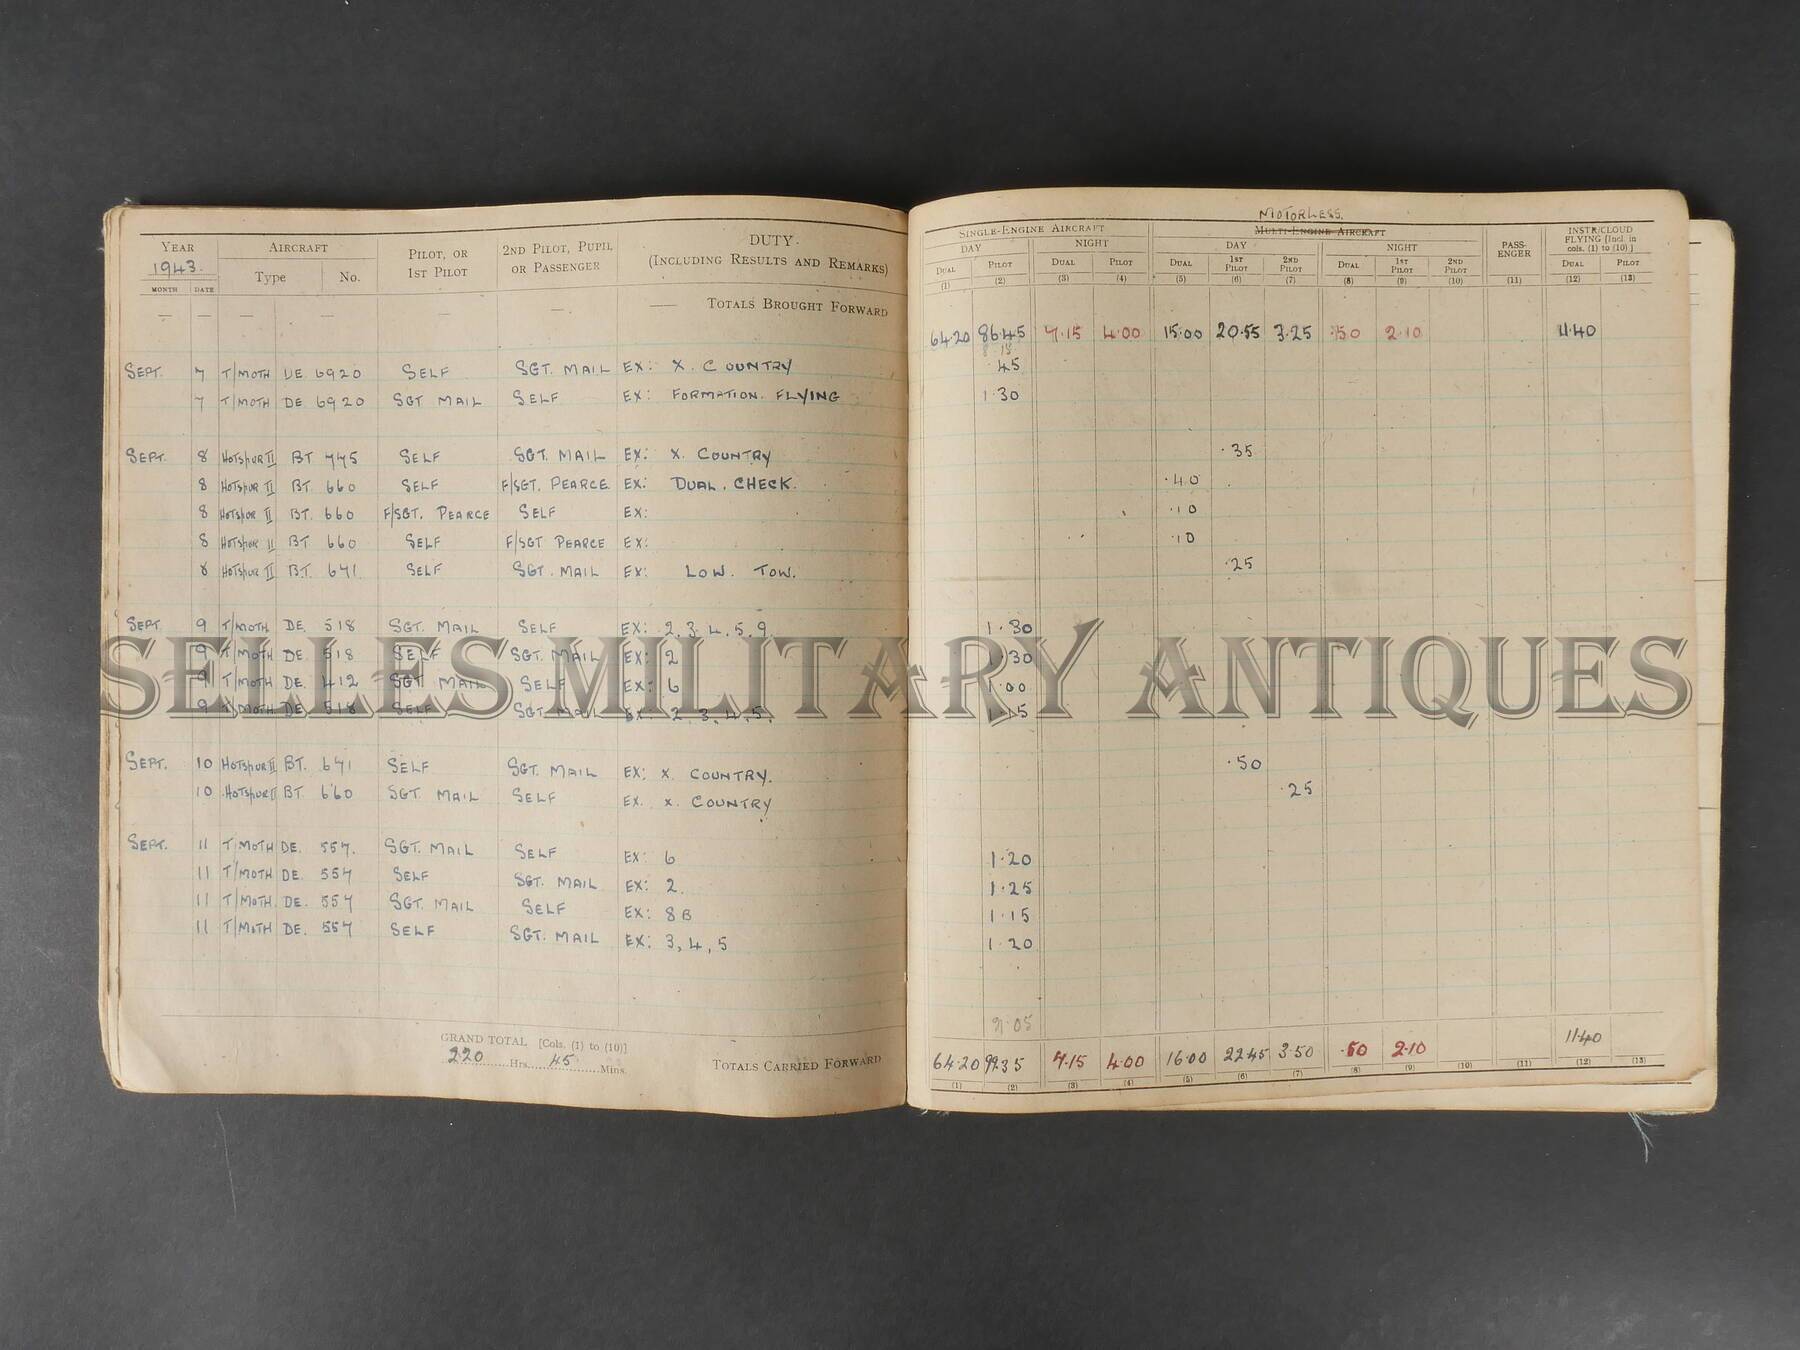 MOTORLESS.
YEAR AIRCRAFT PILOT, OR 1ST PILOT 2ND PILOT, PUPIL OR PASSENGER DUTY (INCLUDING RESULTS AND REMARKS) SINGLE-ENGINE AIRCRAFT MULTI-ENGINE AIRCRAFT PASSENGER INSTR/CLOUD FLYING [Incl. in cols. (1) to (10)]
1943. Type No. DAY NIGHT DAY NIGHT
MONTH DATE DUAL PILOT DUAL PILOT DUAL 1ST PILOT 2ND PILOT DUAL 1ST PILOT 2ND PILOT DUAL PILOT
(1) (2) (3) (4) (5) (6) (7) (8) (9) (10) (11) (12) (13)
— — — — — — — TOTALS BROUGHT FORWARD 64.20 86.45 7.15 4.00 15.00 20.55 3.25 .50 2.10 11.40
SEPT. 7 T/MOTH DE 6920 SELF SGT. MAIL EX: X. COUNTRY .45
7 T/MOTH DE 6920 SGT MAIL SELF EX: FORMATION. FLYING 1.30
SEPT. 8 HOTSPUR II BT 775 SELF SGT. MAIL EX: X. COUNTRY .35
8 HOTSPUR II BT. 660 SELF F/SGT. PEARCE EX: DUAL. CHECK. .40
8 HOTSPUR II BT. 660 F/SGT. PEARCE SELF EX: .10
8 HOTSPUR II BT 660 SELF F/SGT PEARCE EX: .10
8 HOTSPUR II BT. 641 SELF SGT. MAIL EX: LOW. TOW. .25
SEPT. 9 T/MOTH DE. 518 SGT. MAIL SELF EX: 2.3.4.5.9. 1.30
9 T/MOTH DE. 518 SELF SGT. MAIL EX: 2 30
9 T/MOTH DE. 412 SGT MAIL SELF EX: 6 1.00
9 T/MOTH DE. 518 SELF SGT. MAIL EX: 2.3.4.5.
SELLES MILITARY ANTIQUES
SEPT. 10 HOTSPUR II BT. 641 SELF SGT. MAIL EX: X. COUNTRY. .50
10 HOTSPUR II BT. 660 SGT. MAIL SELF EX. X. COUNTRY .25
SEPT. 11 T/MOTH DE. 557. SGT. MAIL SELF EX: 6 1.20
11 T/MOTH DE. 557 SELF SGT. MAIL EX: 2. 1.25
11 T/MOTH. DE. 557 SGT. MAIL SELF EX: 8B 1.15
11 T/MOTH DE. 557 SELF SGT. MAIL EX: 3, 4, 5 1.20
9.05
GRAND TOTAL [Cols. (1) to (10)]
220 Hrs. 45 Mins. TOTALS CARRIED FORWARD 64.20 9235 7.15 4.00 16.00 22.45 3.50 .50 2.10 11.40
(1) (2) (3) (4) (5) (6) (7) (8) (9) (10) (11) (12) (13)